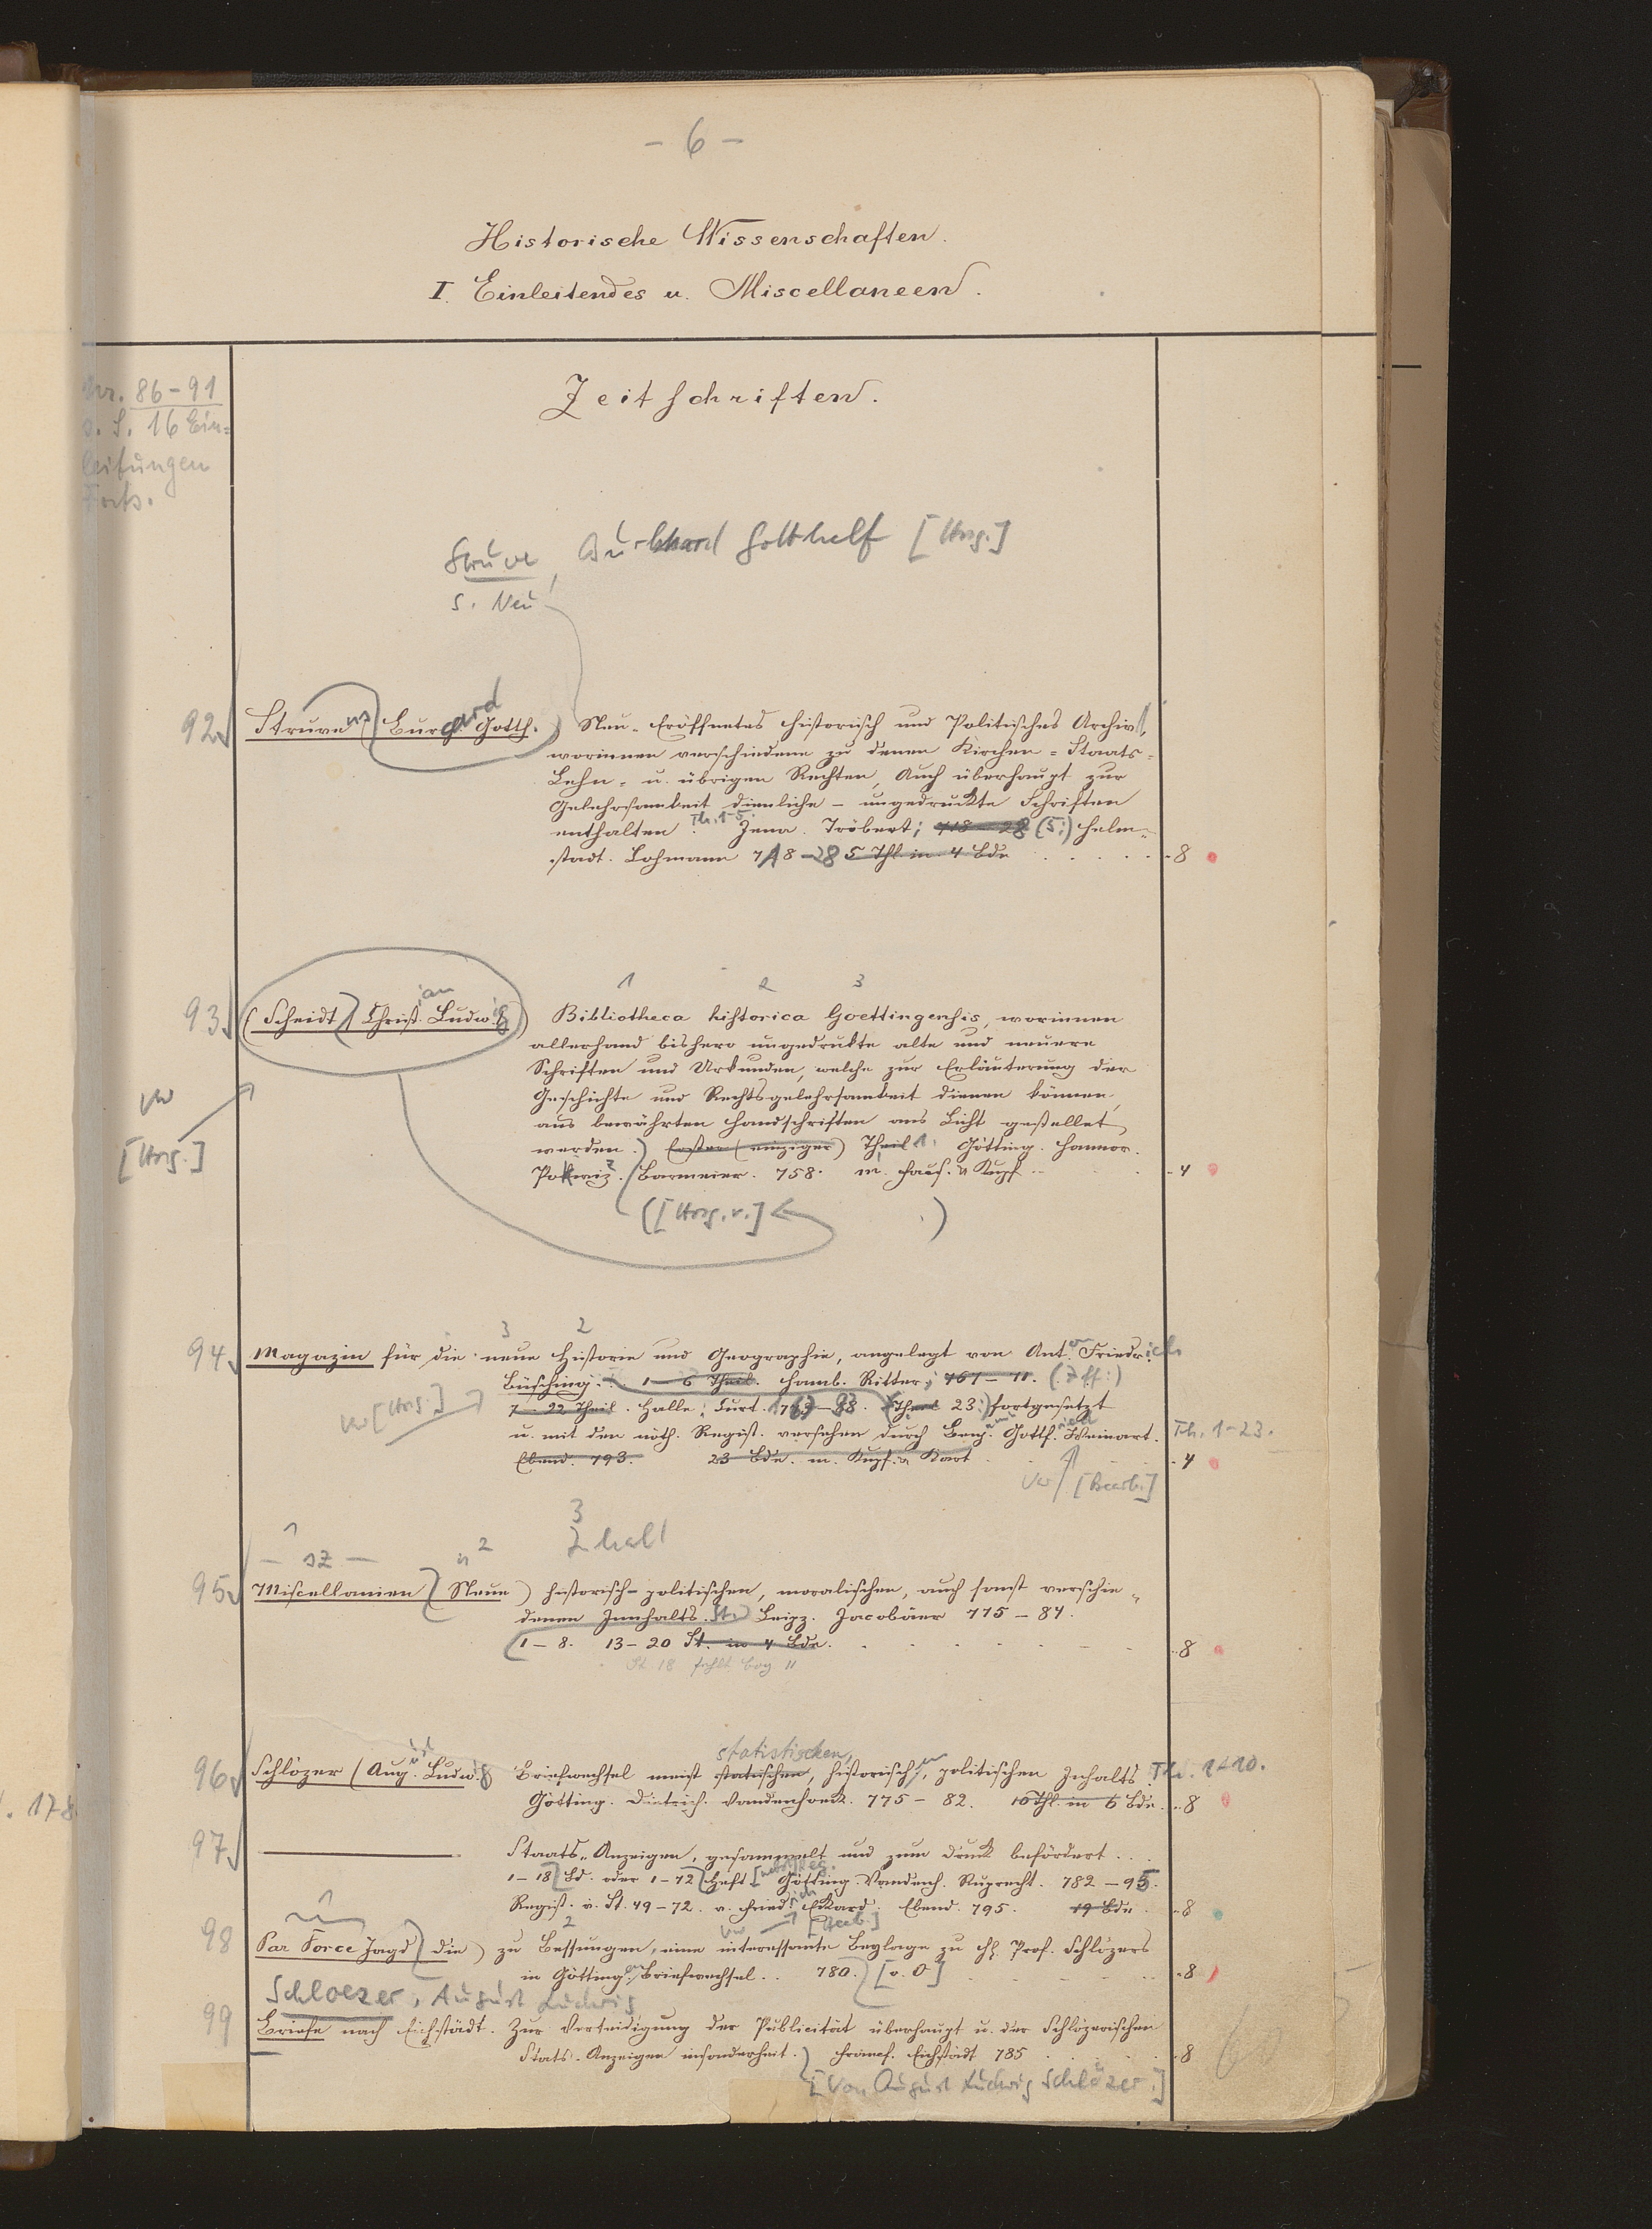 - 6 -
Historische Wissenschaften.
I. Einleitendes u. Miscellaneen.
Nr. 86-91
s. S. 16 Ein=
leitungen
Forts.
Zeitschriften.
Struve, Burkhard Gotthelf [Hrsg.]
s. Neu
92 Struve (Burgard Gotth.) Neu-Eröffnetes historisch und Politisches Archiv,
worinnen verschiedene zu denen Kirchen= Staats=
Lehn= u. übrigen Rechten, Auch überhaupt zur
Gelehrsamkeit dienliche - ungedruckte Schriften
enthalten. Th. 1-5. Jena. Tröbert; 718-28 (5:) Helm=
stadt. Lohmann 718-28 5 Thl in 4 Bde - 8
1 2 3
93 (Scheidt (Christian Ludwig) Bibliotheca historica Goettingensis, worinnen
allerhand bishero ungedrukte alte und neuere
Schriften und Urkunden, welche zur Erläuterung der
Geschichte und Rechtsgelehrsamkeit dienen können,
aus bewährten Handschriften ans Licht gestellet
werden. Erster (einziger) Theil 1. Götting. Hannov.
Barmeier. 758. m. Kupf. - 4
vw
[Hrsg.]
([Hrsg. v.] )
3 2
94 Magazin für die neue Historie und Geographie, angelegt von Anton Friedrich
Büsching. 1-6 Theil. Hamb. Ritter; 767-71. (7 ff:)
7-22 Theil. Halle; Curt. - 93. Theil 23:) fortgesetzt
u. mit den nöth. Regist. versehen durch Benj. Gottf. Weinart. Th. 1-23.
Ebend. 793. 23 Bde. m. Kupf. u Kart - 4
vw [Hrsg.]
vw [Bearb.]
1 2 3
- sz - Inhalt
95 Miscellanien (Neue) historisch-politischen, moralischen, auch sonst verschie=
denen Innhalts. St. Leipz. Jacobäer 775-84.
1-8. 13-20 St. in 4 Bde. - 8
St. 18 fehlt bog 11
96 Schlözer (Aug. Ludwig Briefwechsel meist statistischen, historischen, politischen Inhalts. Th. 1-10.
Götting. Dietrich. Vandenhoeck. 775-82. 10 Thl. in 5 Bde. - 8
97 ——— Staats-Anzeigen, gesammelt und zum Druck befördert...
1-18 Bd. oder 1-72 Heft [nebst Reg. Götting. Vandenh. Ruprecht. 782-95.
Regist. v. St. 49-72. v. Friedrich Ekkard. Ebend. 795. 19 Bde. - 8
vw [Bearb.]
1 2
98 Par Force Jagd (die) zu Bessungen, eine interessante Beylage zu H. Prof. Schlözers
in Götting. Briefwechsel.. 780. [o. O] - 8
Schloezer, August Ludwig
99 Briefe nach Eichstädt. Zur Verteidigung der Publicität überhaupt u. der Schlözerischen
Stats. Anzeigen insonderheit. Francf. Eichstädt 785 - 8
[Von August Ludwig Schlözer.]
60
. 178